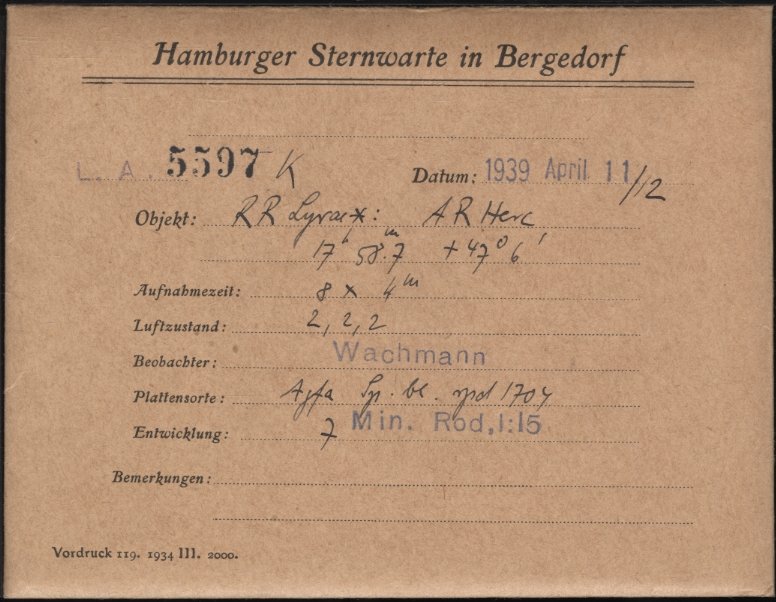 Hamburger Sternwarte in Bergedorf
L. A. 5597 K Datum: 1939 April 11/12
Objekt: RR Lyrae *: AR Herc
17h 58m.7 +47° 6'
Aufnahmezeit: 8 x 4m
Luftzustand: 2, 2, 2
Beobachter: Wachmann
Plattensorte: Agfa Sp. bl. rpd 1704
Entwicklung: 7 Min. Rod, 1:15
Bemerkungen:
Vordruck 119. 1934 III. 2000.